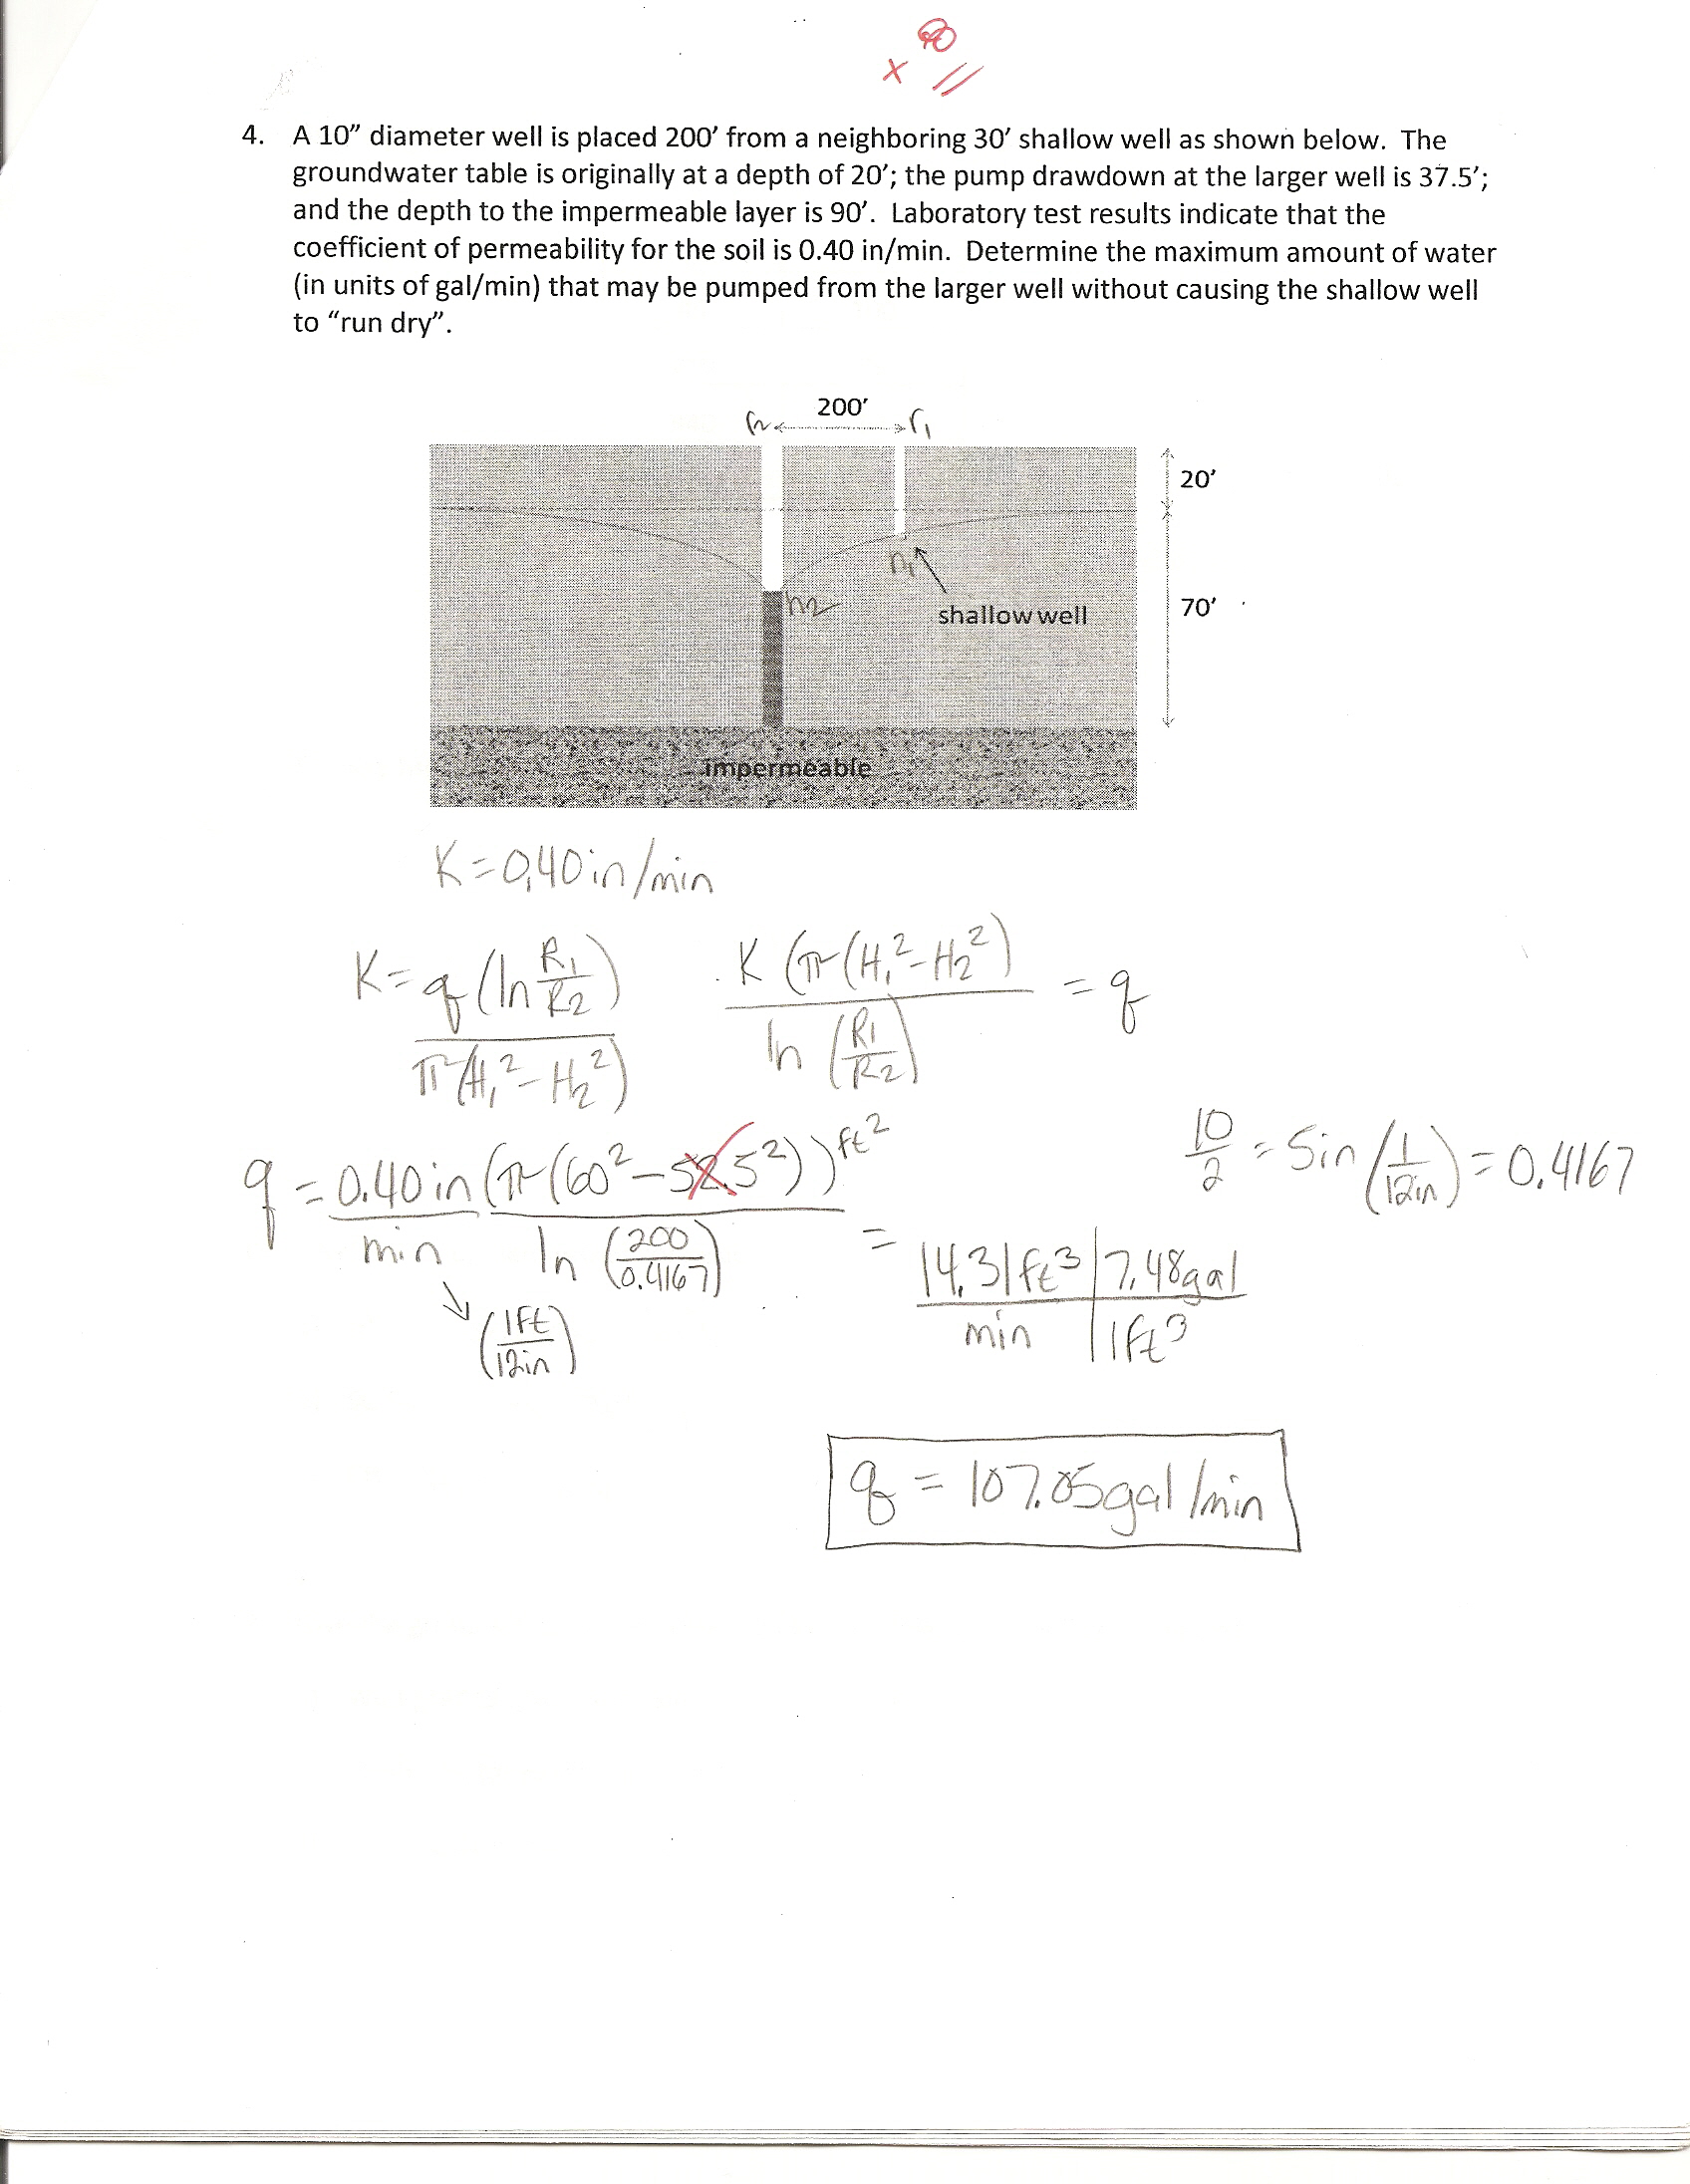 90
×
4. A 10” diameter well is placed 200’ from a neighboring 30’ shallow well as shown below. The
groundwater table is originally at a depth of 20’; the pump drawdown at the larger well is 37.5’;
and the depth to the impermeable layer is 90’. Laboratory test results indicate that the
coefficient of permeability for the soil is 0.40 in/min. Determine the maximum amount of water
(in units of gal/min) that may be pumped from the larger well without causing the shallow well
to “run dry”.
200’
r2 r1
20’
h1
h2
shallow well
70’
impermeable
K=0.40in/min
K = q (ln R1/R2) / π(H1²-H2²)
K (π(H1²-H2²) / ln (R1/R2) = q
10/2 = 5in (1/12in) = 0.4167
q = 0.40in/min (π(60²-52.5²))ft² / ln (200/0.4167) =
(1ft/12in)
14.31ft³/min | 7.48gal/1ft³
q = 107.05gal/min